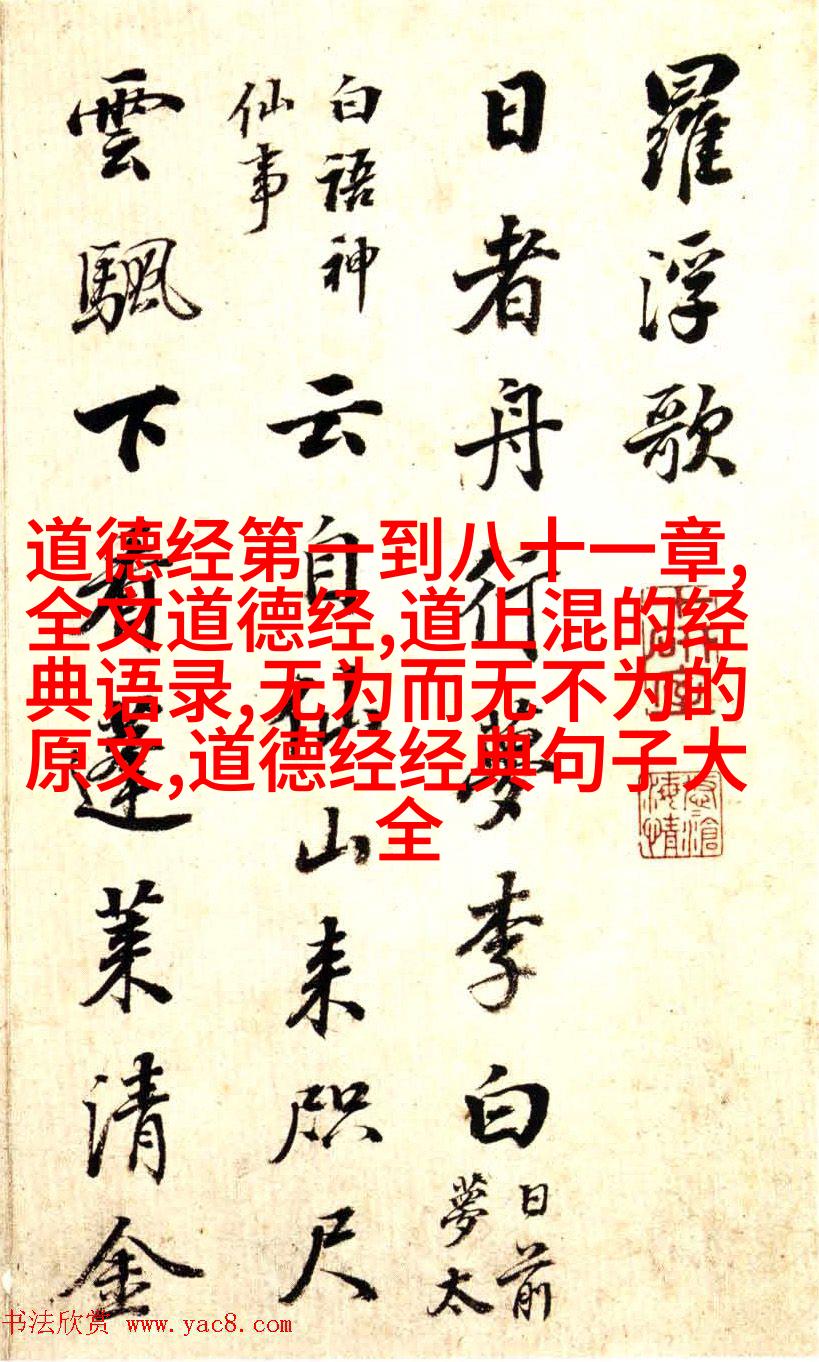 羅浮歌
日者舟行夢李白
日前
夢太
白語神
仙事
云自仙山来咫尺
雲颿下看蓬莱清金
道德经第一到八十一章,
全文道德经,道止混的经
典语录,无为而无不为的
原文,道德经经典句子大
全
书法欣赏 www.yac8.com